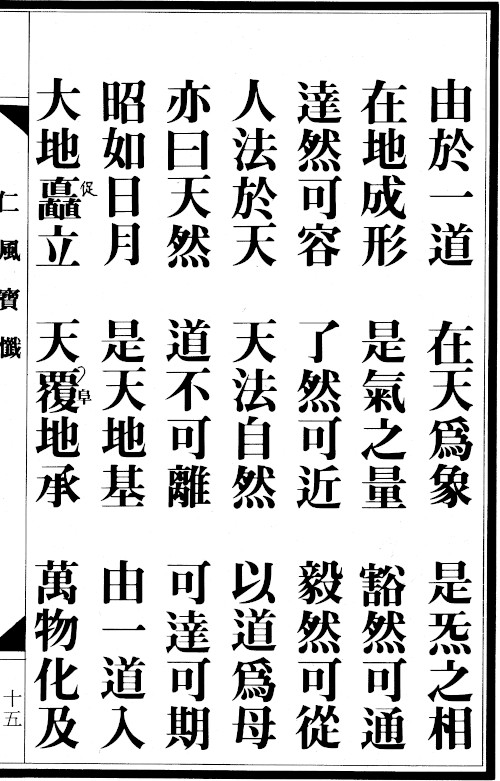 由於一道　在天爲象　是炁之相
在地成形　是氣之量　豁然可通
達然可容　了然可近　毅然可從
人法於天　天法自然　以道爲母
亦曰天然　道不可離　可達可期
昭如日月　是天地基　由一道入
大地矗促立　天覆阜地承　萬物化及
仁風寶懺
十五